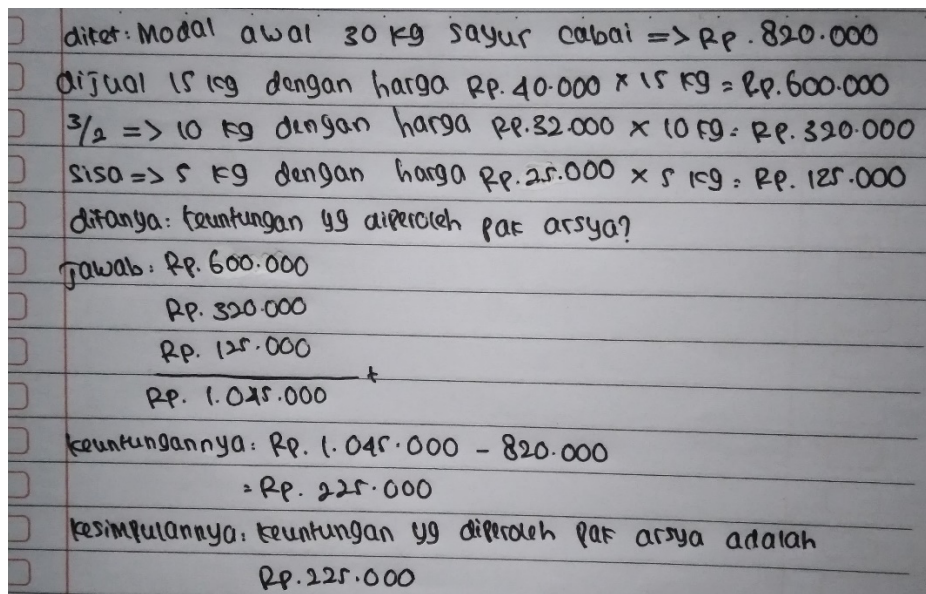 diket: Modal awal 30 kg sayur cabai => Rp. 820.000
dijual 15 kg dengan harga RP. 40.000 x 15 kg = Rp. 600.000
3/2 => 10 kg dengan harga RP. 32.000 x 10 kg = RP. 320.000
sisa => 5 kg dengan harga Rp. 25.000 x 5 kg = RP. 125.000
ditanya: keuntungan yg diperoleh pak arsya?
Jawab: Rp. 600.000
RP. 320.000
RP. 125.000
+
RP. 1.045.000
keuntungannya: Rp. 1.045.000 - 820.000
= Rp. 225.000
kesimpulannya: keuntungan yg diperoleh pak arsya adalah
Rp. 225.000